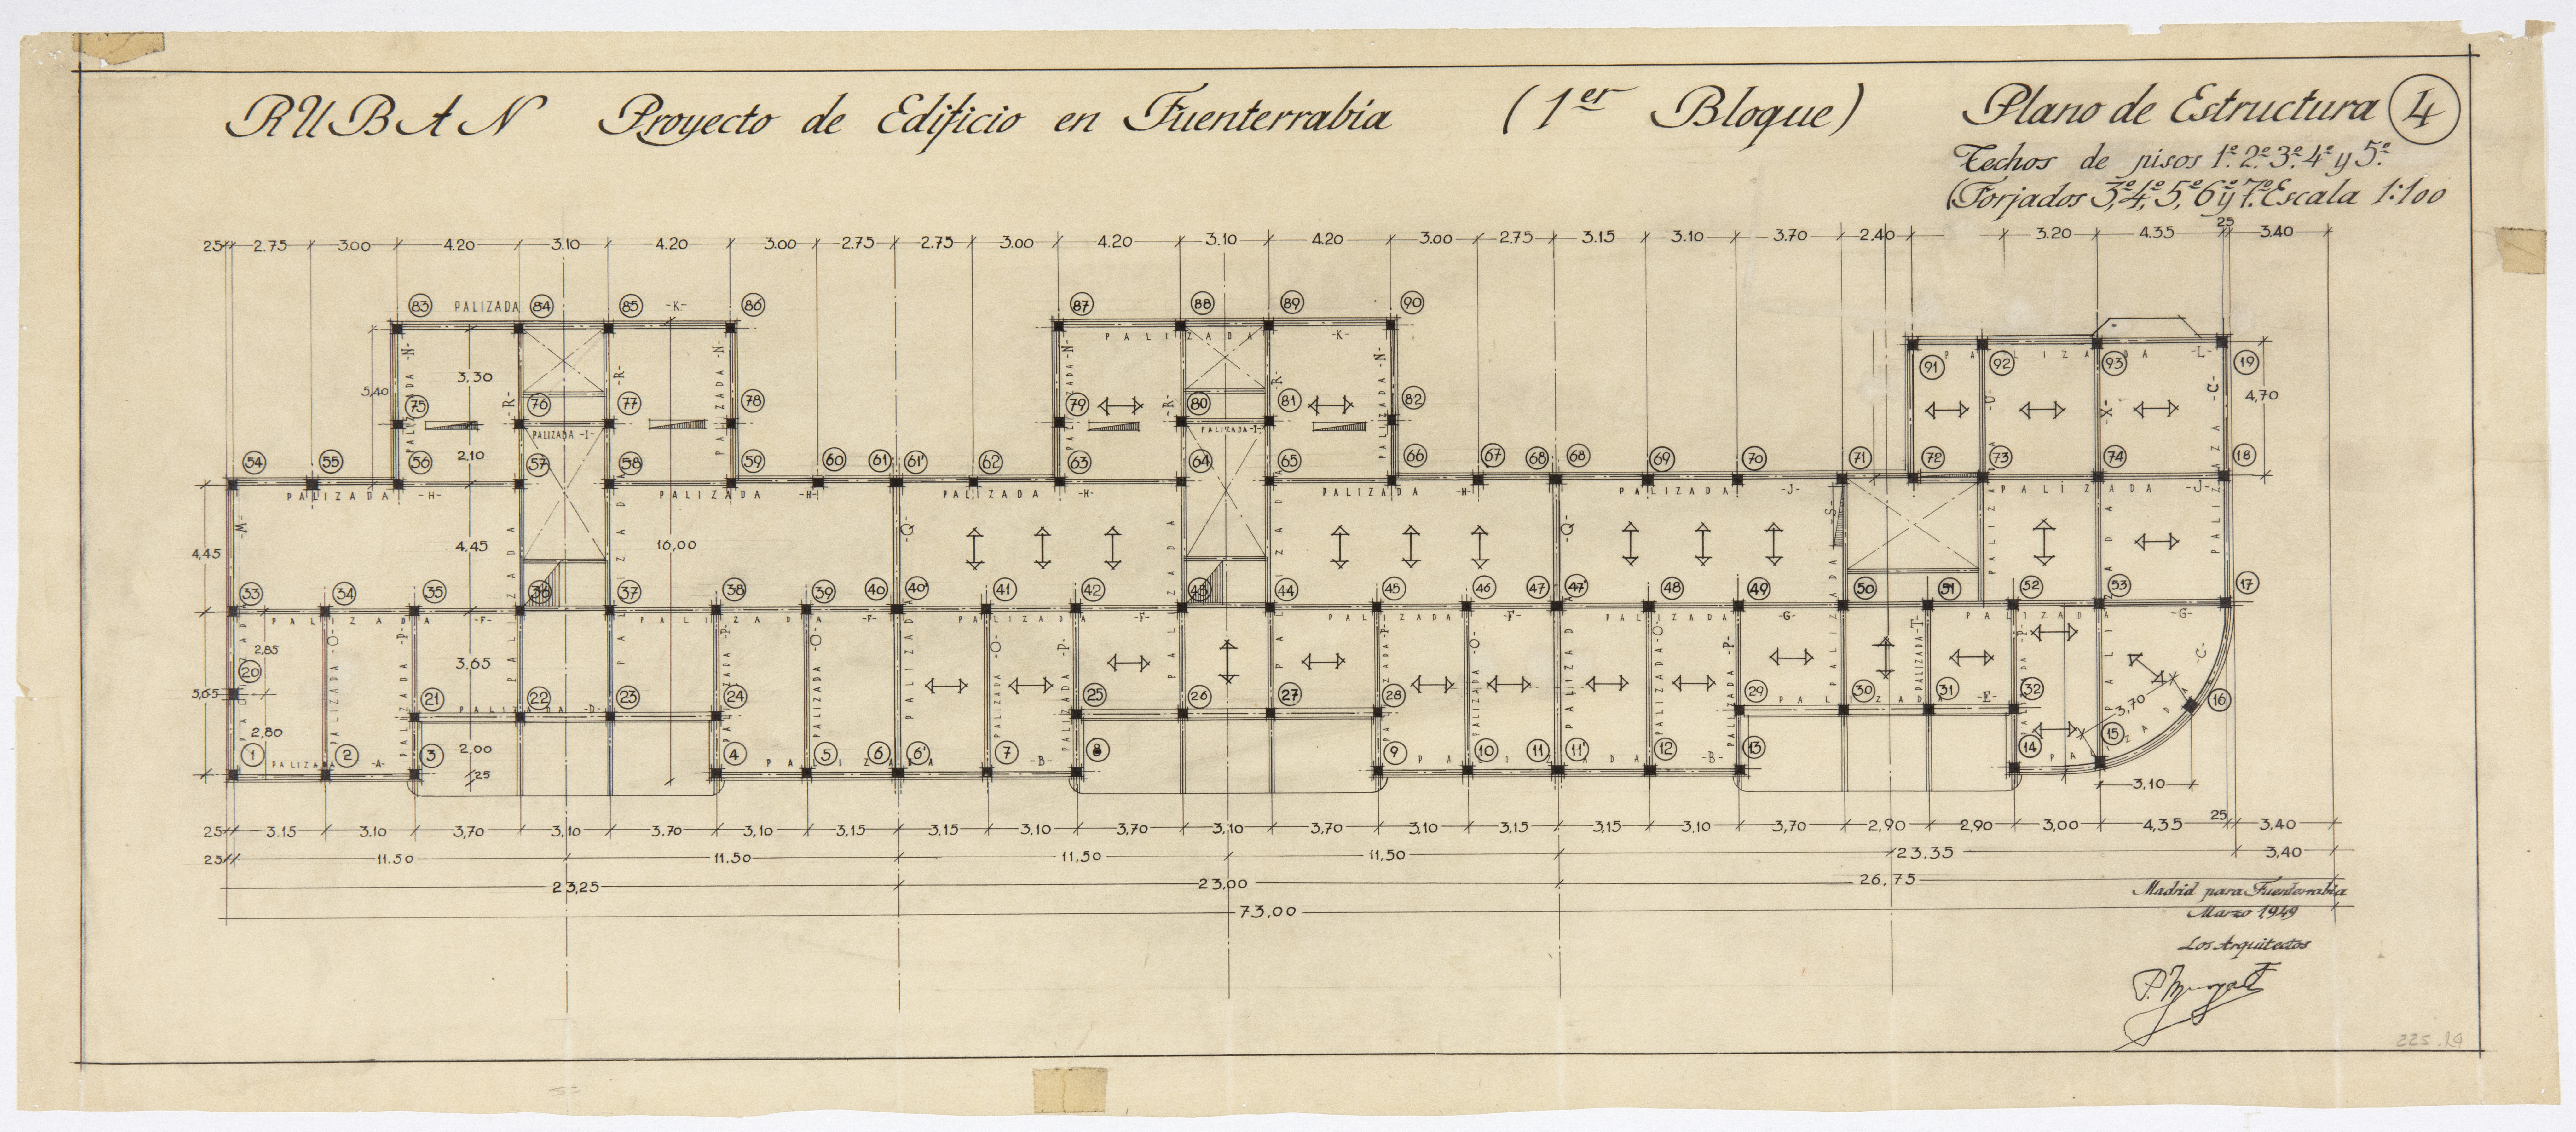 RUBAN Proyecto de Edificio en Fuenterrabía (1er Bloque) Plano de Estructura 4
Techos de pisos 1º. 2º. 3º. 4º y 5º.
(Forjados 3º, 4º, 5º, 6º y 7º. Escala 1:100
25 2.75 3.00 4.20 3.10 4.20 3.00 2.75 2.75 3.00 4.20 3.10 4.20 3.00 2.75 3.15 3.10 3.70 2.40 3.20 4.35 25 3.40
83 PALIZADA 84 85 -K- 86 87 88 89 90
PALIZADA -K-
91 92 93 19
PALIZADA -L-
PALIZADA -N- -R- -R- PALIZADA -N- PALIZADA -N- -R- -R- PALIZADA -N- -U- -X- PALIZADA -C-
5,40 3,30 4,70
75 76 77 78 79 80 81 82
PALIZADA -I- PALIZADA -I-
2,10
54 55 56 57 58 59 60 61 61' 62 63 64 65 66 67 68 68 69 70 71 72 73 74 18
PALIZADA -H- PALIZADA -H- PALIZADA -H- PALIZADA -H- PALIZADA -J- PALIZADA -J-
-M- -Q- -Q- -S-
4,45 4,45 16,00
PALIZADA PALIZADA PALIZADA PALIZADA PALIZADA PALIZADA PALIZADA
33 34 35 36 37 38 39 40 40' 41 42 43 44 45 46 47 47' 48 49 50 51 52 53 17
PALIZADA -F- PALIZADA -F- PALIZADA -F- PALIZADA -F- PALIZADA -G- PALIZADA -G-
PALIZADA PALIZADA -O- PALIZADA -P- PALIZADA -P- PALIZADA -O- PALIZADA PALIZADA -O- PALIZADA -P- PALIZADA -P- PALIZADA -O- PALIZADA PALIZADA -O- PALIZADA -P- PALIZADA -T- PALIZADA -P- -C-
2,85 3,65
20
5,65
21 22 23 24 25 26 27 28 29 30 31 32 16
PALIZADA -D- PALIZADA -E-
3,70
2,80 2,00
1 2 3 4 5 6 6' 7 8 9 10 11 11' 12 13 14 15
PALIZADA -A- PALIZADA -B- PALIZADA -B- PALIZADA
25 3,10
25 3.15 3.10 3,70 3,10 3.70 3,10 3,15 3,15 3,10 3,70 3,10 3,70 3,10 3,15 3,15 3,10 3,70 2,90 2,90 3,00 4,35 25 3,40
25 11.50 11,50 11,50 11,50 23,35 3,40
23,25 23,00 26,75
73,00
Madrid para Fuenterrabía
Marzo 1949
Los Arquitectos
225.29